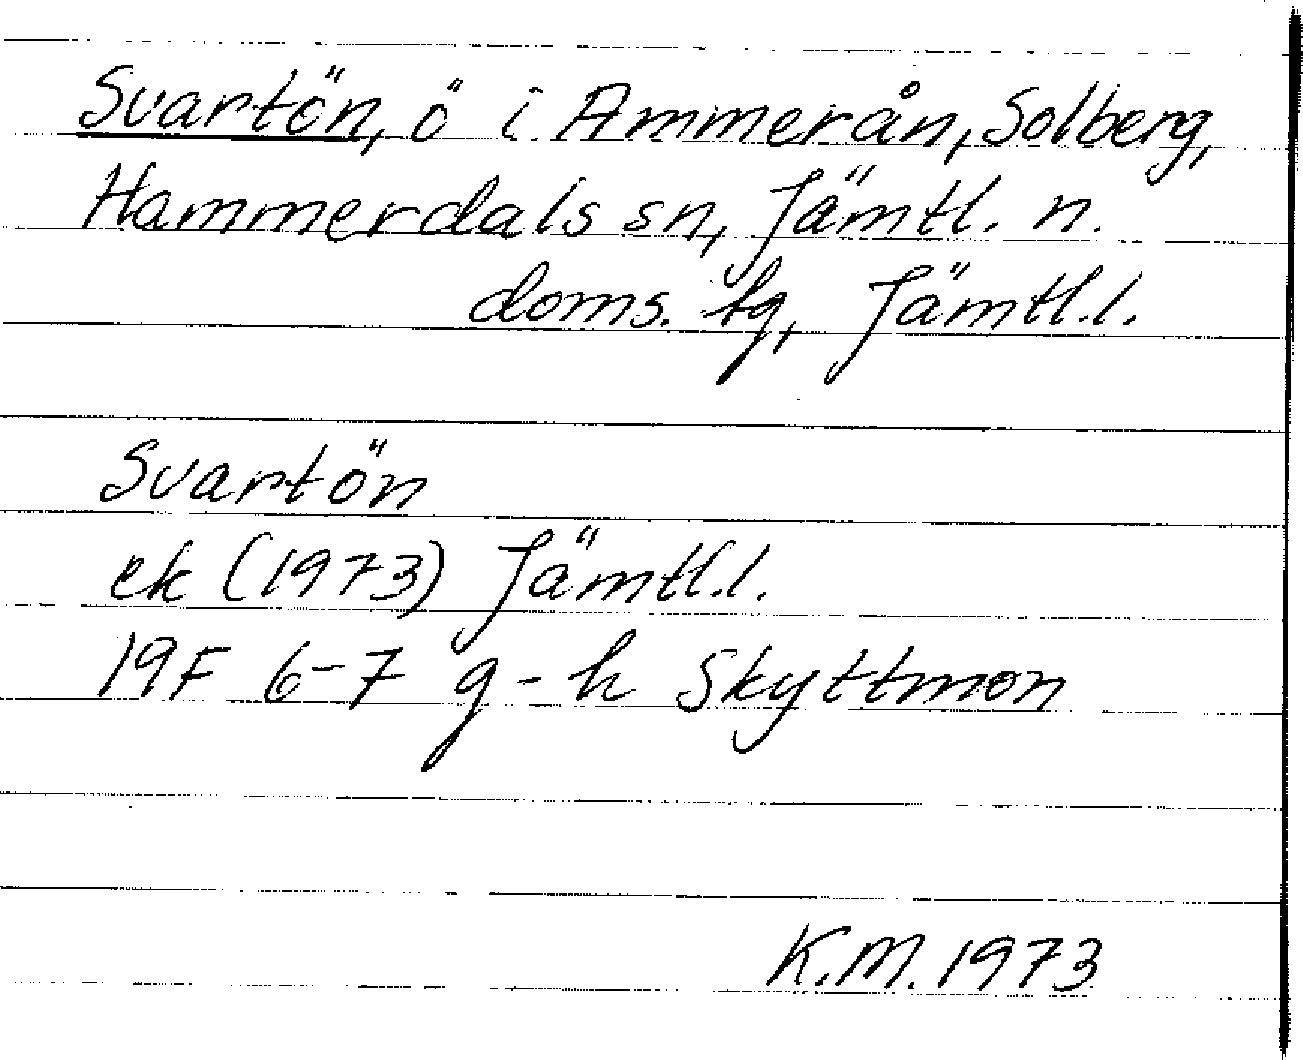 Svartön, ö i Ammerån, Solberg,
Hammerdals sn, Jämtl. n.
doms. tg, Jämtl.l.
Svartön
ek (1973) Jämtl.l.
19F 6-7 g-h Skyttmon
K.M. 1973